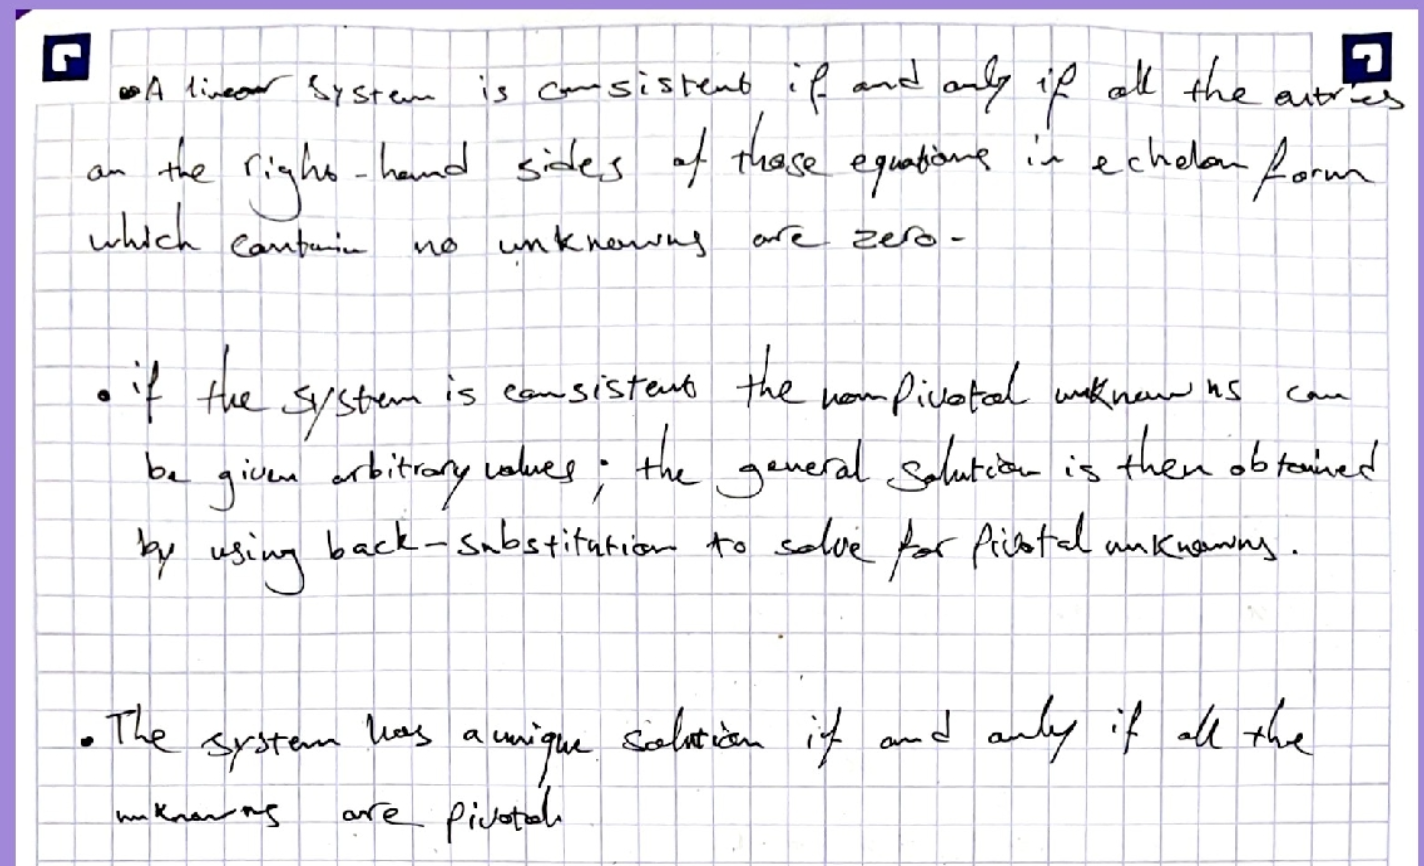 • A linear system is consistent if and only if all the entries
on the right-hand sides of those equations in echelon form
which contain no unknowns are zero-
• if the system is consistent the non pivotal unknowns can
be given arbitrary values; the general solution is then obtained
by using back-substitution to solve for pivotal unknowns.
• The system has a unique solution if and only if all the
unknowns are pivotal